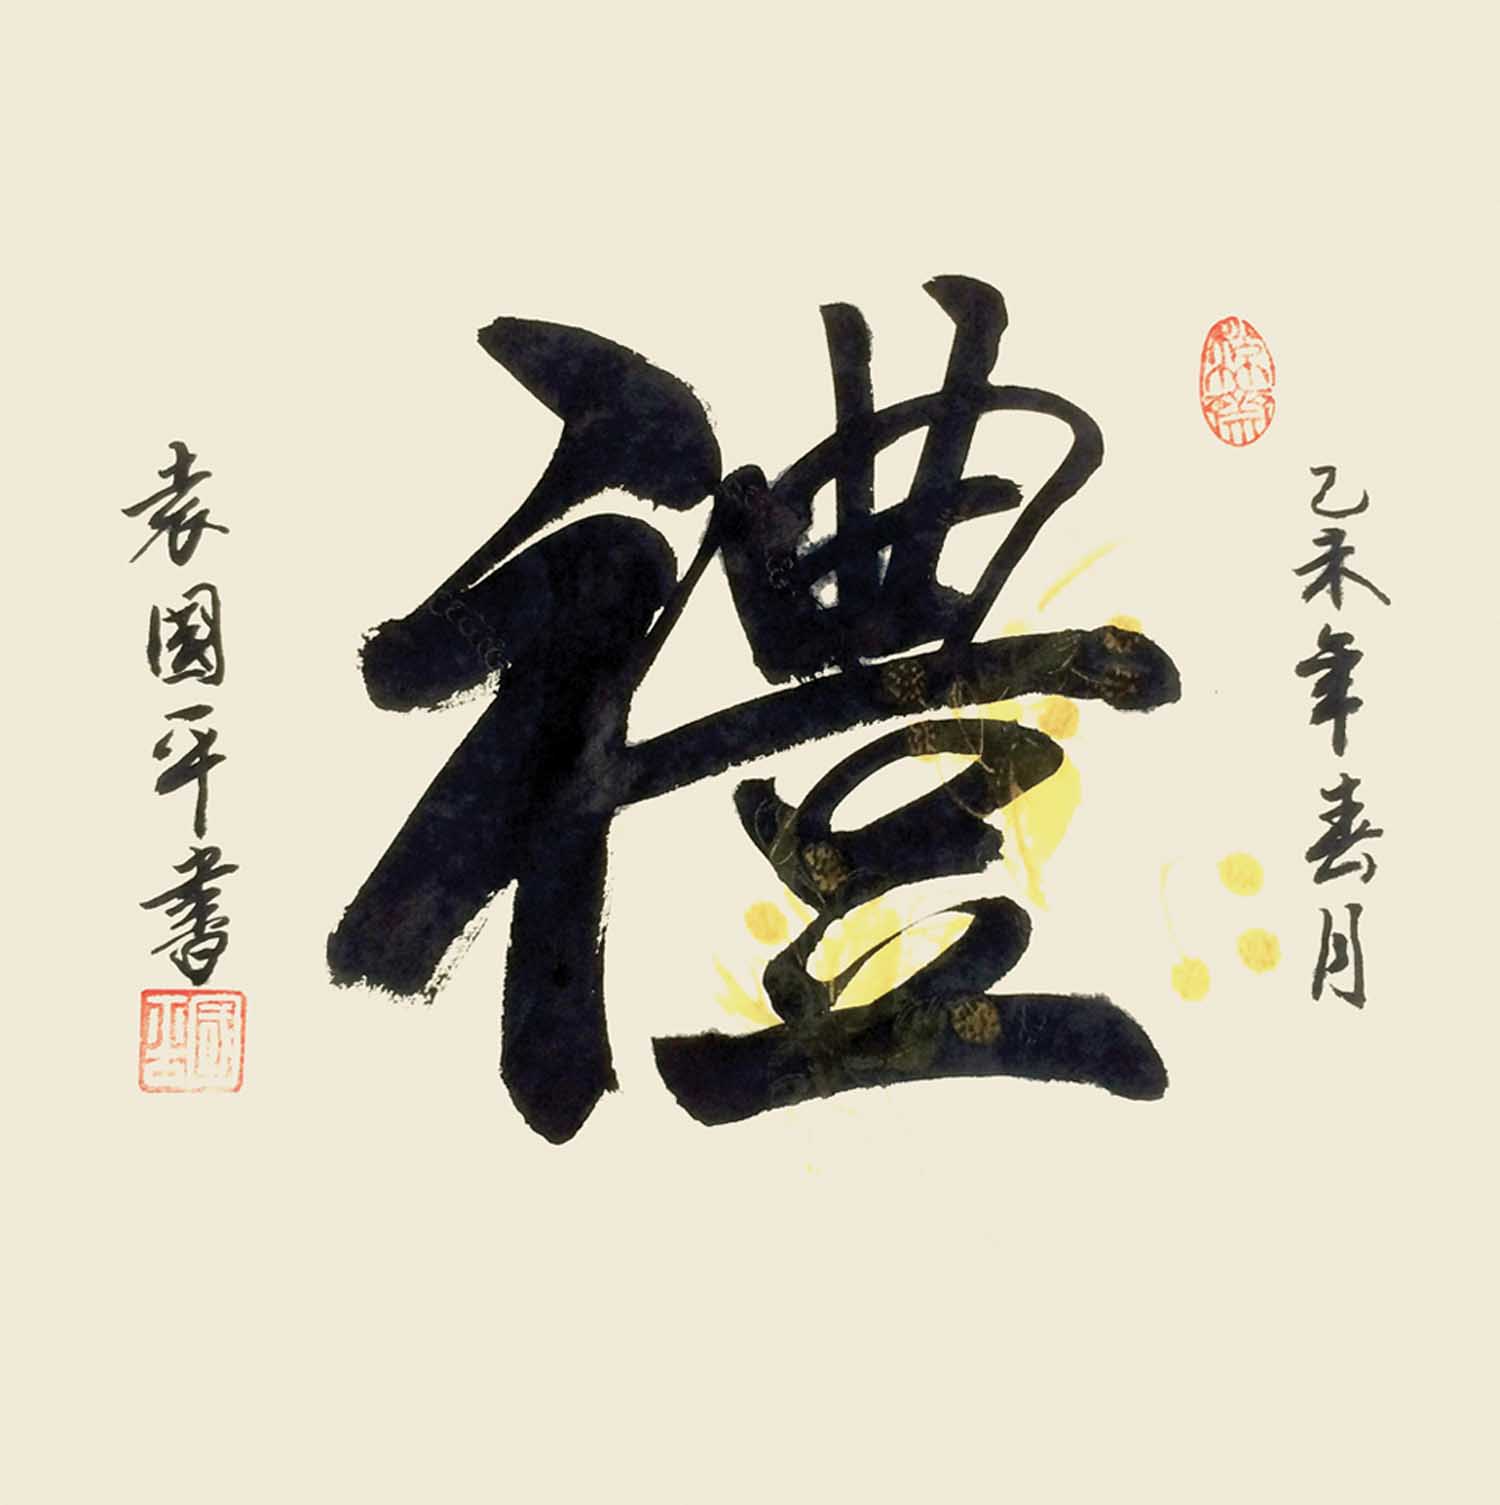 乙未年春月
禮
袁國平書
國平